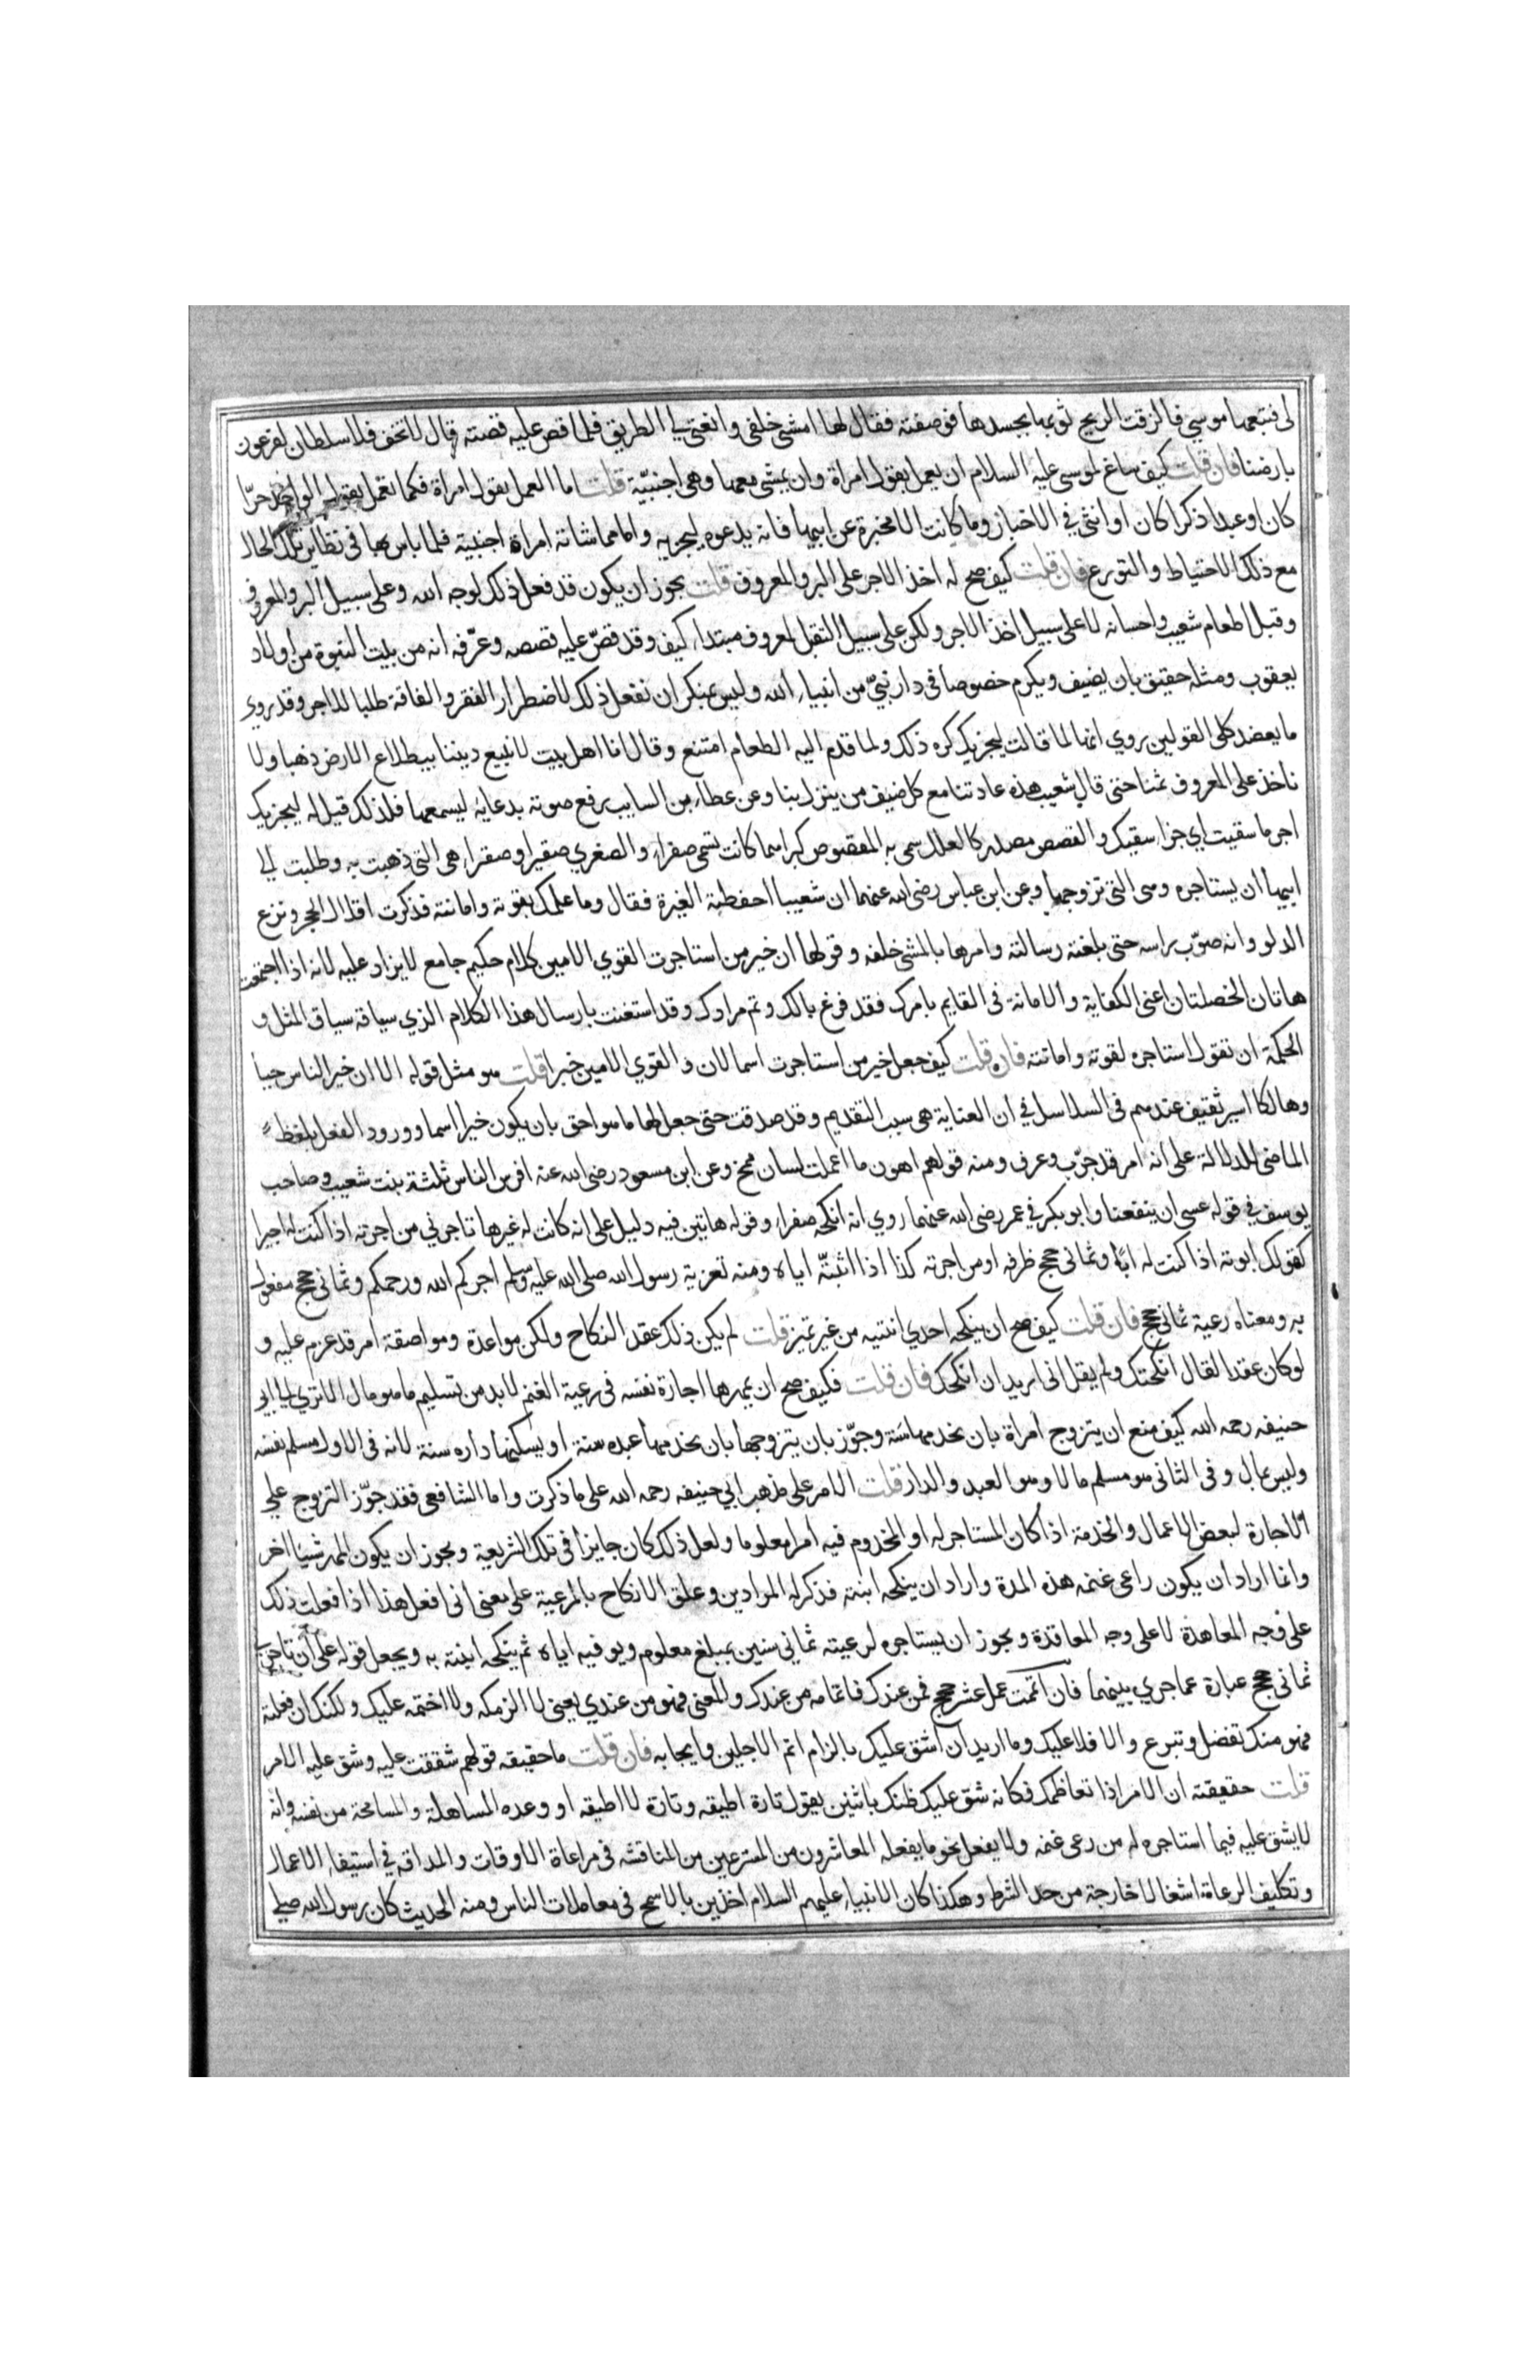 لى فتبعها موسي فالزقت الريح ثوبها بجسدها فوصفته فقال لها امشى خلفى وانعتى لي الطريق فلما قص عليه قصته قال لا تخف فلا سلطان لفرعون
بارضنا فان قلت كيف ساغ لموسى عليه السلام ان يعمل بقول امراة وان يمشى معها وهى اجنبيّة قلت اما العمل بقول امراة فكما تعمل بقول الواحد حرّا
كان او عبدا ذكرا كان او انثي في الاخبار وما كانت الا مخبرة عن ابيها فانه يدعوه ليجزيه واما مماشاته امراة اجنبية فلما باس بها فى نظاير تلك الحال
مع ذلك الاحتياط والتورع فان قلت كيف صح له اخذ الاجر على البر والمعروف قلت يجوز ان يكون قد فعل ذلك لوجه الله وعلى سبيل البر والمعروف
وقبل طعام شعيب واحسانه لا على سبيل اخذ الاجر ولكن على سبيل التقبل لمعروف مبتداء كيف وقد قصّ عليه قصصه وعرّفه انه من بيت النبوة من اولاد
يعقوب ومثله حقيق بان يضيف ويكرم خصوصا فى دار نبيّ من انبياء الله وليس بمنكر ان نفعل ذلك لاضطرار الفقر والفاقة طلبا للاجر وقد روى
ما يعضد كلى القولين روي انها لما قالت ليجزيك كره ذلك ولما قدم اليه الطعام امتنع وقال انا اهل بيت لا نبيع ديننا بيطلاع الارض ذهبا ولا
ناخذ على المعروف ثمنا حتى قال شعيب هذه عادتنا مع كل ضيف من ينزل بنا وعن عطاء بن السايب رفع صوته بدعايه ليسمعها فلذلك قيل له ليجزيك
اجر ما سقيت اي جزاء سقيك والقصص مصدر كالعلل سمى به المقصوص كبراهما كانت تسمى صفراء والصغري صفيرا وصفراء هى التى ذهبت به وطلبت لي
ابيها ان يستاجره وهى التى تزوجها وعن ابن عباس رضى الله عنهما ان شعيبا احفظته الغيرة فقال وما علمك بقوته وامانته فذكرت اقلال الحجر ونزع
الدلو وانه صوّب راسه حتى بلغته رسالته وامرها بالمشى خلفه وقولها ان خير من استاجرت القوي الامين كلام حكيم جامع لا يزاد عليه لانه اذا اجتمعت
هاتان الخصلتان اعنى الكفاية والامانة فى القايم بامرك فقد فرغ بالك وتم مرادك وقد استغنت بارسال هذا الكلام الذي سياقه سياق المثل و
الحكمة ان نقول استاجره لقوته وامانته فان قلت كيف جعل خير من استاجرت اسما لان و القوي الامين خبرا قلت هو مثل قوله الا ان خير الناس حيا
وهالكا اسير ثقيف عندهم فى السلاسل في ان العناية هى سبب التقديم وقد صدقت حتى جعل لها ما هو احق بان يكون خيرا اسما وورود الفعل بلفظ
الماضى للدلالة على انه امر قد جرّب وعرف ومنه قولهم اهون ما اعملت لسان ممخ وعن ابن مسعود رضى الله عنه افرس الناس ثلثة بنت شعيب وصاحب
يوسف في قوله عسى ان ينفعنا وابو بكر في عمر رضى الله عنهما روي انه انكحه صفراء وقوله هاتين فيه دليل على انه كانت له غيرها تاجرني من اجرته اذا كنت له اجيرا
كقولك ابوته اذا كنت له ابًا وثمانى حجج ظرفه او من اجرته كذا اذا اثبتّه اياه ومنه تعزية رسول الله صلى الله عليه وسلم اجركم الله ورحمكم وثمانى حجج مفعول
به ومعناه رعية ثمانى حجج فان قلت كيف صح ان ينكحه احدي ابنتيه من غير تميز قلت لم يكن ذلك عقد النكاح ولكن مواعدة ومواصفة امر قد عزم عليه و
لو كان عقدا لقال انكحتك ولم يقل انى اريد ان انكحك فان قلت فكيف صح ان يمهرها اجارة نفسه فى رعية الغنم لا بد من تسليم ما هو مال الا تري لي ابى
حنيفه رحمه الله كيف منع ان يتزوج امراة بان يخدمها سنة وجوّز بان يتزوجها بان يخدمها عبده سنة او يسكنها داره سنة لانه فى الاول مسلم نفسه
وليس بمال وفى الثانى هو مسلم مالا وهو العبد والدار قلت الامر على مذهب ابي حنيفه رحمه الله على ما ذكرت واما الشافعى فقد جوّز التزوج على
الاجارة لبعض الاعمال والخدمة اذا كان المستاجر له او المخدوم فيه امرا معلوما ولعل ذلك كان جايزا فى تلك الشريعة ويجوز ان يكون المهر شيئا اخر
وانما اراد ان يكون راعى غنمه هذه المدة واراد ان ينكحه ابنته فذكر له المرادين وعلق الانكاح بالمرعية على معنى انى افعل هذا اذا فعلت ذلك
على وجه المعاهدة لا على وجه المعاقدة ويجوز ان يستاجره لرعيته ثمانى سنين بمبلغ معلوم ويوفيه اياه ثم ينكحه ابنته به ويجعل قوله على ان تاجرني
ثمانى حجج عبارة عما جري بينهما فان اتممت عمل عشر حجج فمن عندك فاتمامه من عندك والمعنى فهو من عندي يعنى لا الزمكه ولا اختمه عليك ولكنك ان فعلته
فهو منك تفضل وتبرع والا فلا عليك وما اريد ان اشق عليك بالزام اتم الاجلين وايجابه فان قلت ما حقيقه قولهم شققت عليه وشق عليه الامر
قلت حقيقته ان الامر اذا تعاظمك فكانه شق عليك ظنك باثنين يقول تارة اطيقه وتارة لا اطيقه او وعده المساهلة والمسامحة من نفسه وانه
لا يشق عليه فيما استاجره له من رعى غنمه ولا يفعل نحو ما يفعله المعاشرون من المسترعين من المناقشه فى مراعاة الاوقات والمداقه فى استيفاء الاعمال
وتكليف الرعاة اشغالا خارجة من حد الشرط وهكذا كان الانبياء عليهم السلام اخذين بالاسمح فى معاملات الناس ومنه الحديث كان رسول الله صلى